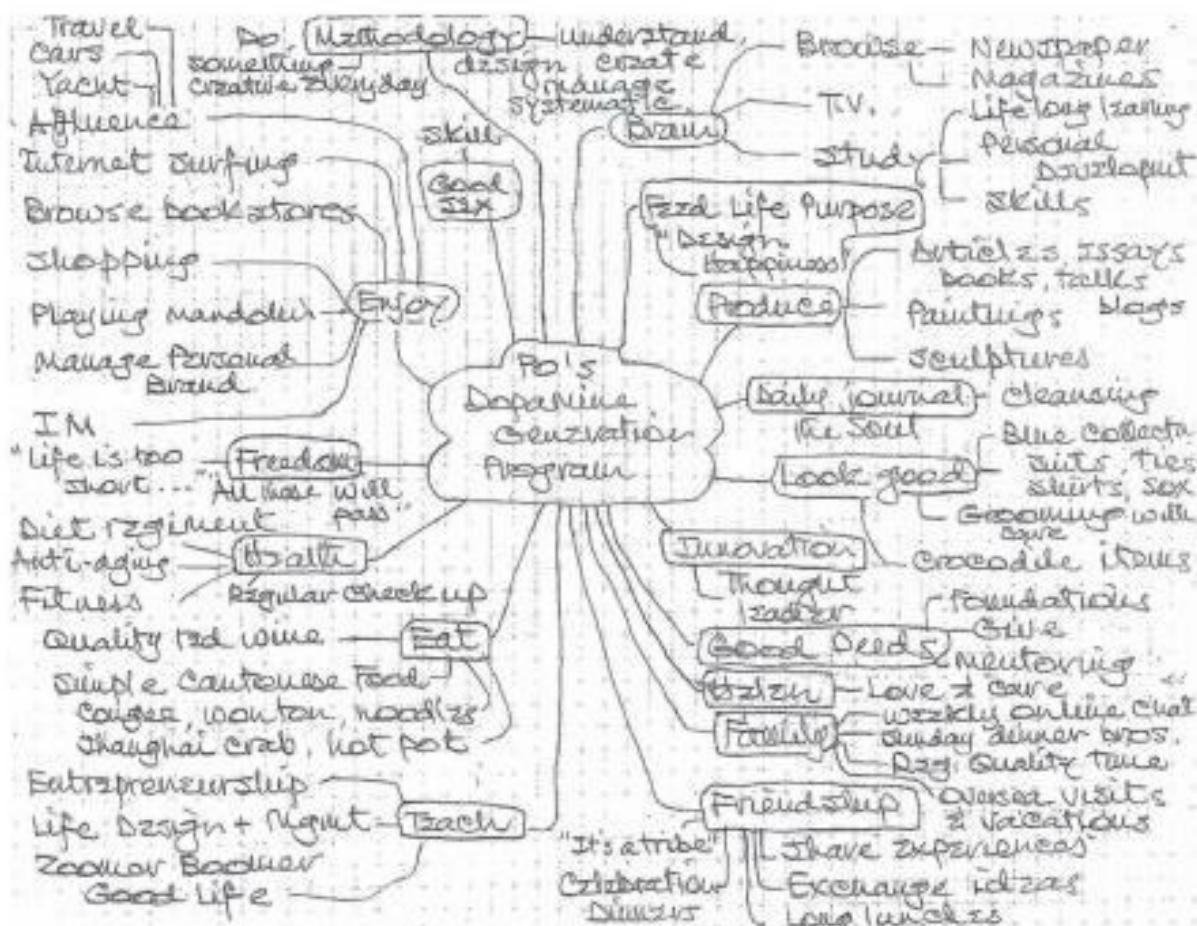 Po's
Dopamine
Generation
Program
Methodology
Do
something
creative everyday
understand
design create
manage
systematic
Brain
Browse
Newspaper
Magazines
T.V.
Study
Life long learning
Personal
Skills
Feed Life Purpose
"Design
Happiness"
Produce
Articles, essays
books, talks
blogs
Paintings
Sculptures
Daily journal
cleansing
the soul
Look good
Suits, ties
shirts, sox
Grooming with
care
Crocodile items
Innovation
Thought
leader
Good Deeds
Foundations
Give
Mentoring
Helen
Love & care
Family
weekly online chat
Sunday dinner bros.
Reg. Quality Time
Oversea visits
& vacations
Friendship
"It's a tribe"
Celebration
Dinners
Share experiences
Exchange ideas
Long lunches
Teach
Entrepreneurship
Life Design + Mgmt
Zoomer Boomer
Good Life
Eat
Quality red wine
Simple Cantonese Food
wonton, noodles
Shanghai crab, hot pot
Health
Diet regiment
Anti-aging
Fitness
Regular check up
Freedom
"Life is too
short...."
"All these will
pass"
Enjoy
Travel
Cars
Yacht
Affluence
Internet surfing
Browse bookstores
Shopping
Playing mandolin
Manage Personal
Brand
IM
Good
Sex
Skill